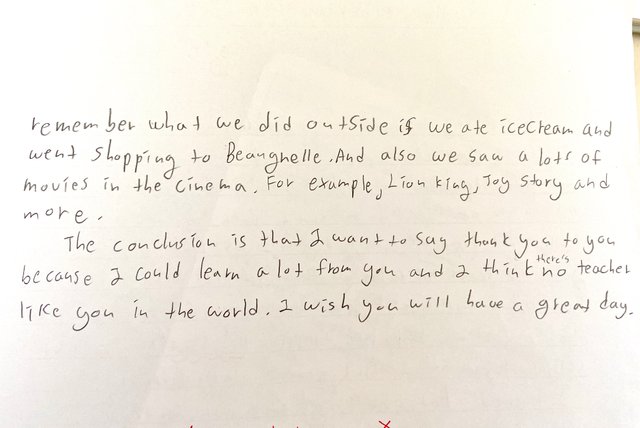 remember what we did outside is we ate icecream and
went shopping to Beaugnelle. And also we saw a lots of
movies in the cinema. For example, Lion king, Toy story and
more.
The conclusion is that I want to say thank you to you
because I could learn a lot from you and I think there's no teacher
like you in the world. I wish you will have a great day.